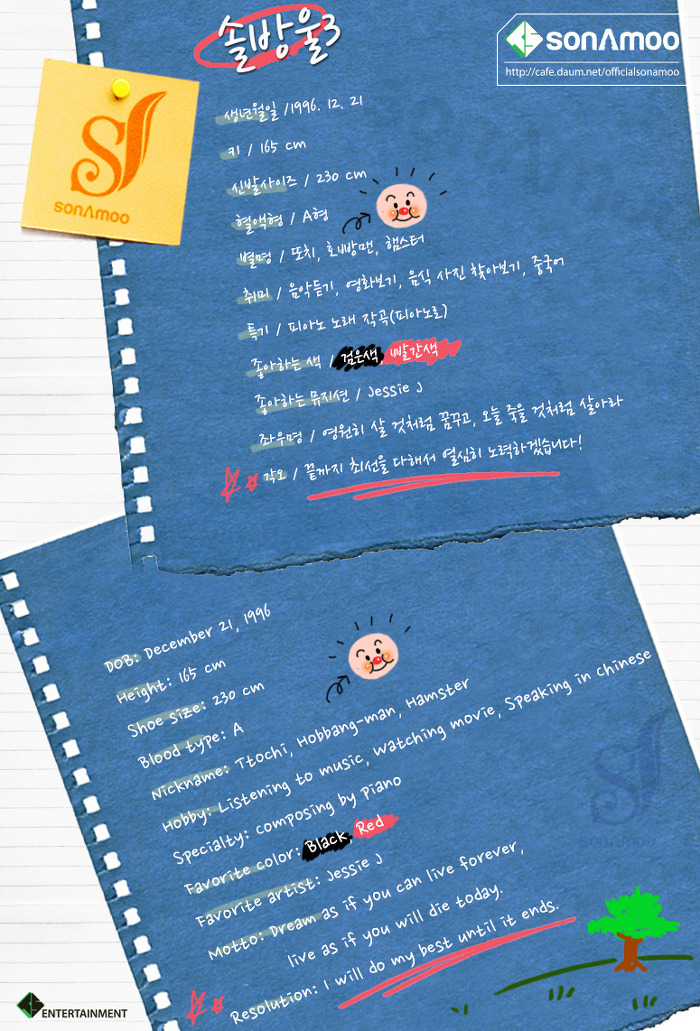 솔방울3
SONAMOO
http://cafe.daum.net/officialsonamoo
SONAMOO
생년월일 / 1996. 12. 21
키 / 165 cm
신발사이즈 / 230 cm
혈액형 / A형
별명 / 또치, 호빵맨, 햄스터
취미 / 음악듣기, 영화보기, 음식 사진 찾아보기, 중국어
특기 / 피아노 노래 작곡(피아노로)
좋아하는 색 / 검은색, 빨간색
좋아하는 뮤지션 / Jessie J
좌우명 / 영원히 살 것처럼 꿈꾸고, 오늘 죽을 것처럼 살아라
각오 / 끝까지 최선을 다해서 열심히 노력하겠습니다!
DOB: December 21, 1996
Height: 165 cm
Shoe size: 230 cm
Blood type: A
Nickname: Ttochi, Hobbang-man, Hamster
Hobby: Listening to music, Watching movie, Speaking in Chinese
Specialty: composing by piano
Favorite color: Black, Red
Favorite artist: Jessie J
Motto: Dream as if you can live forever,
live as if you will die today.
Resolution: I will do my best until it ends.
ENTERTAINMENT